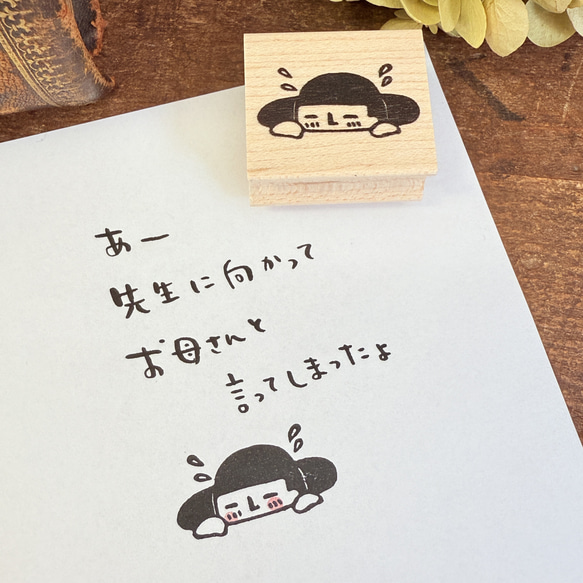 あー
先生に向かって
お母さんと
言ってしまったよ